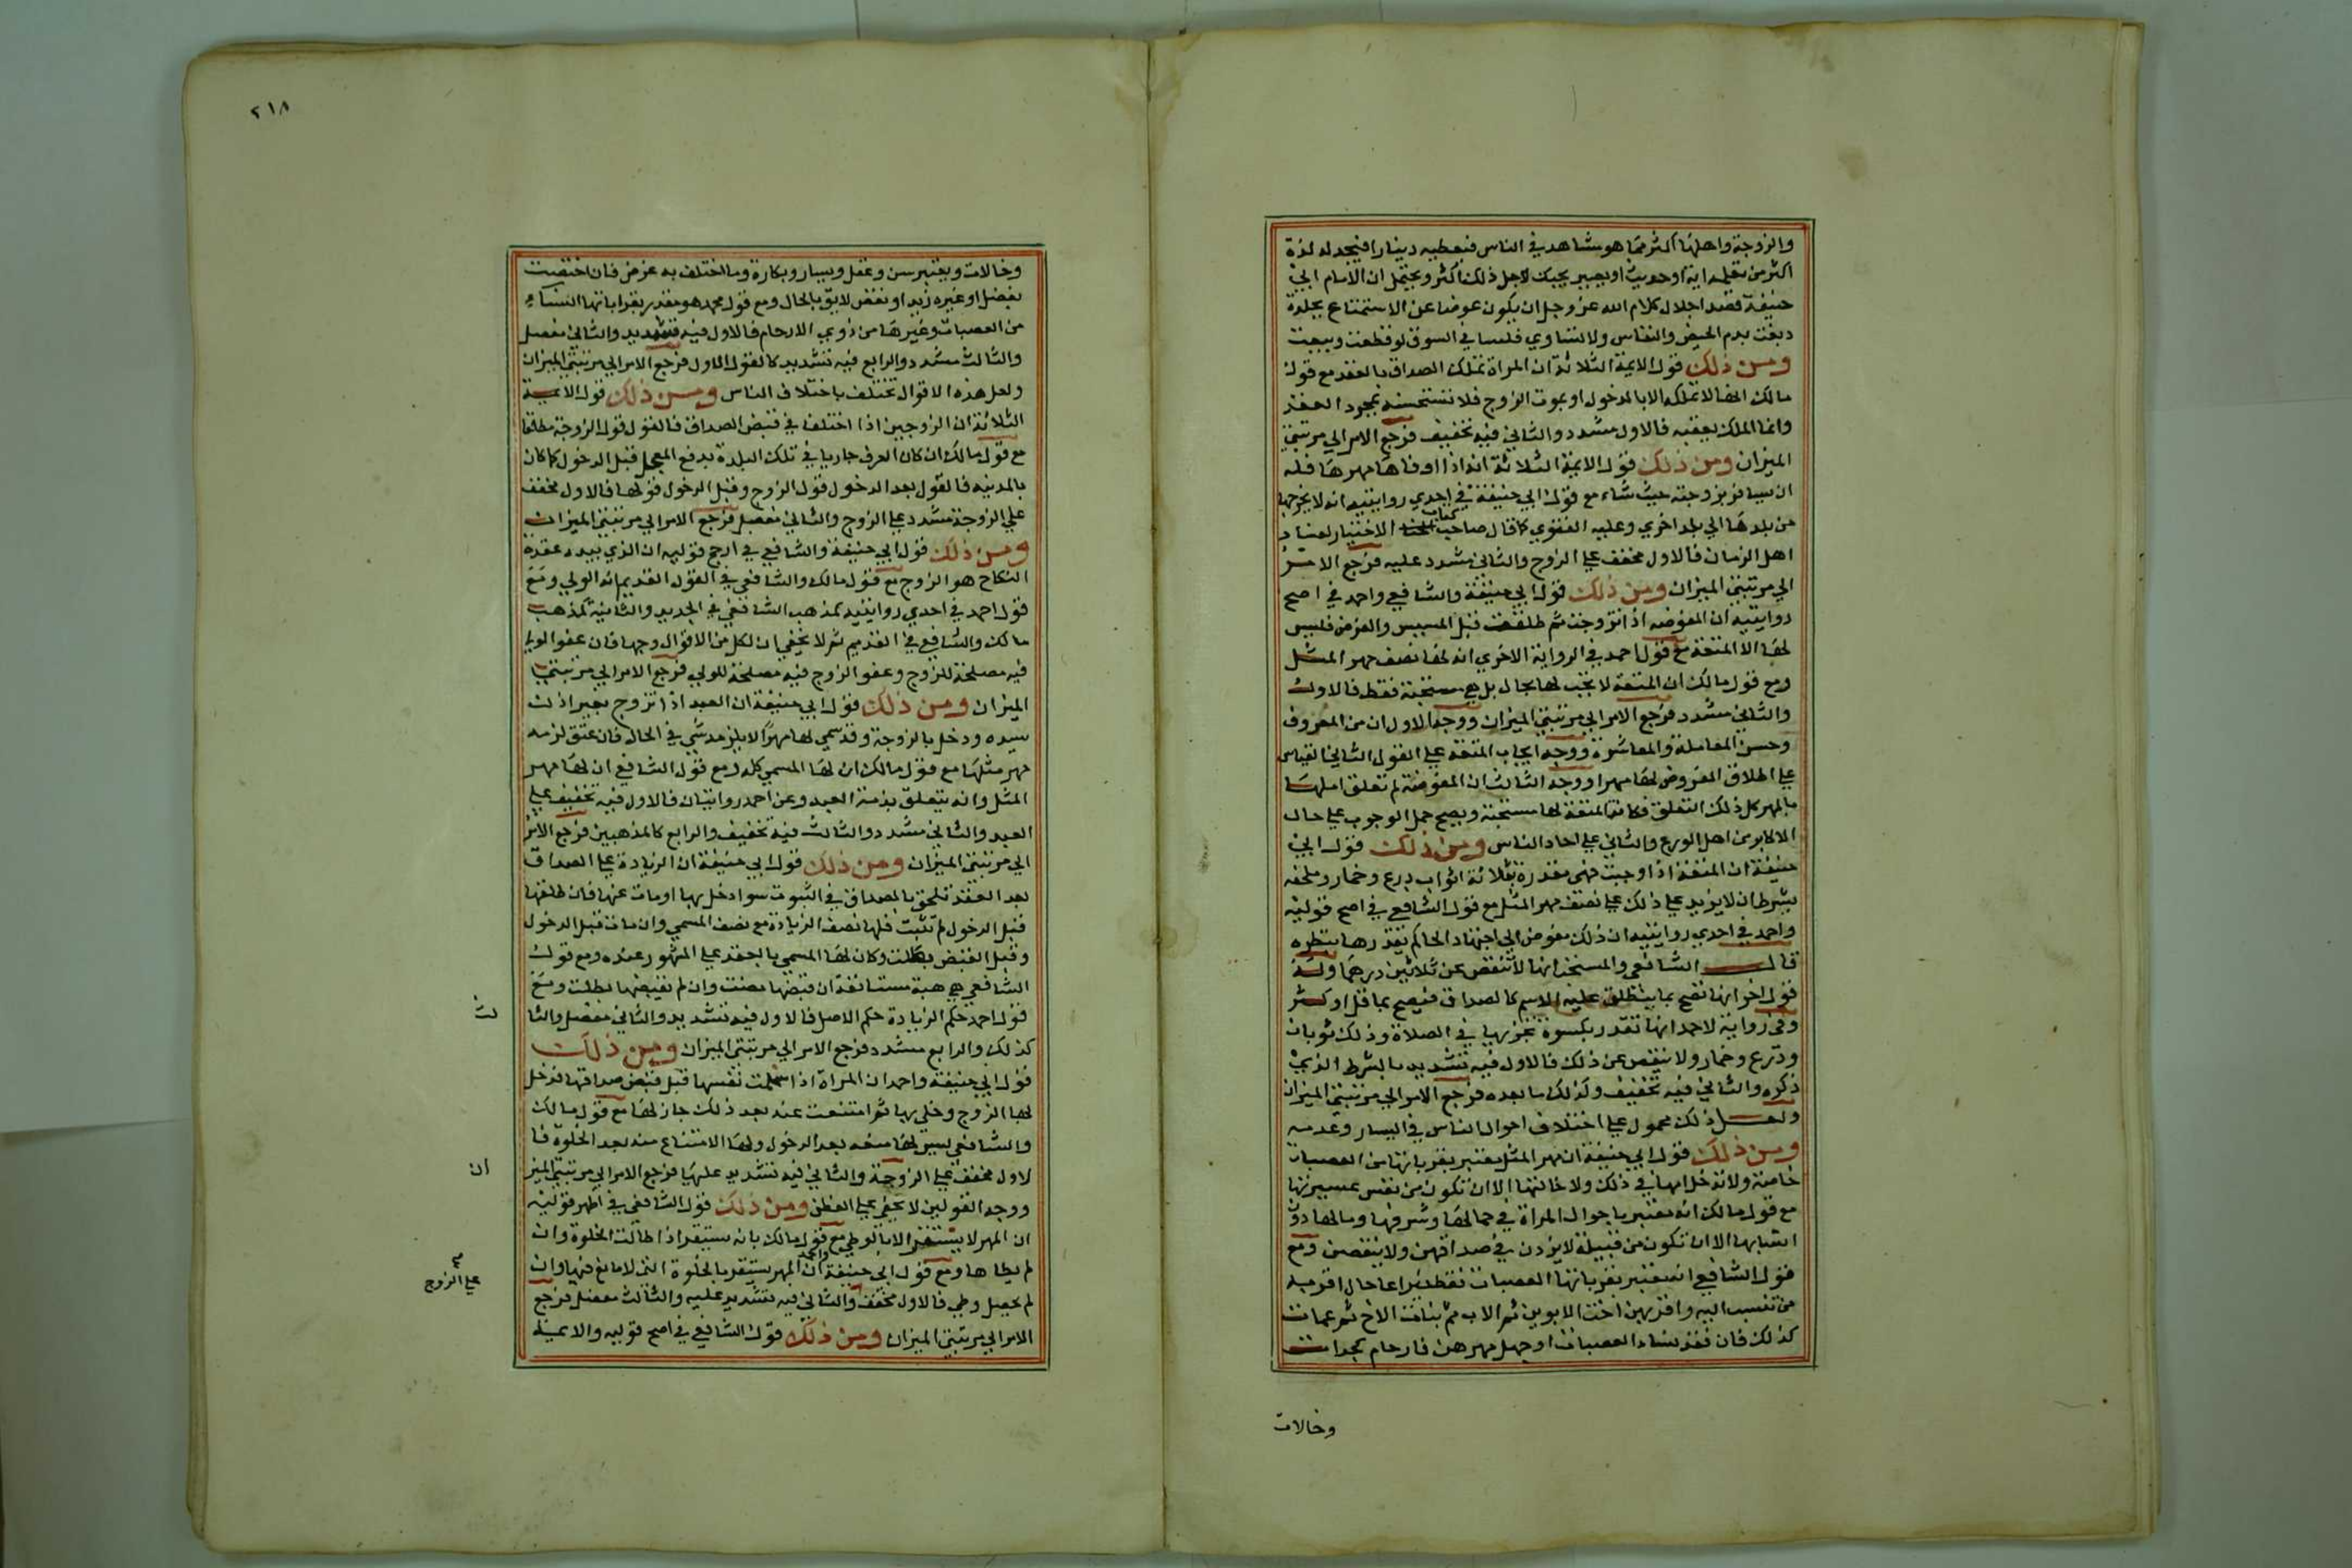 والزوجة واهلها اكثر مما هو مشاهد في الناس فيعطيه دينارا فيجد له لذة
اكثر من تعليمه اية او حديث او يصير يحبك لاجل ذلك اكثر ويحتمل ان الامام ابي
حنيفة قصد اجلال كلام الله عز وجل ان يكون عوضا عن الاستمتاع بجلدة
دبغت بدم الحيض والنفاس ولا تساوي فلسا في السوق لو قطعت وبيعت
ومن ذلك قول الايمة الثلاثة ان المراة تملك الصداق بالعقد مع قول
مالك انها لا تملكه الا بالدخول او بموت الزوج فلا تستحسنه بمجرد العقد
وانما الملك بعقبه فالاول مشدد والثاني فيه تخفيف فرجع الامر الي مرتبتي
الميزان ومن ذلك قول الايمة الثلاثة انه اذا اوفاها مهرها فله
ان يسافر بزوجته حيث شاء مع قول ابي حنيفة في احدي روايتيه انه لا يخرجها
من بلدها الي بلد اخري وعليه الفتوي كما قال صاحب كتاب الاختيار لفساد
اهل الزمان فالاول مخفف علي الزوج والثاني مشدد عليه فرجع الامر
الي مرتبتي الميزان ومن ذلك قول ابي حنيفة والشافعي واحمد في اصح
روايتيه ان المفوضه اذا تزوجت ثم طلقت قبل المسيس والفرض فليس
لها الا المتعة مع قول احمد في الرواية الاخري انه لها نصف مهر المثل
ومع قول مالك ان المتعة لا تجب لها بحال بل هي مستحبة فقط فالاول
والثاني مشدد فرجع الامر الي مرتبتي الميزان ووجه الاول ان من المعروف
وحسن المعاملة والمعاشرة ووجه ايجاب المتعة علي القول الثاني القياس
علي اطلاق الفروض لها مهرا ووجه الثالث ان المفوضة لم تعلق املها
بالمهر كل ذلك التعلق فكانت المتعة لها مستحبة ويصح حمل الوجوب علي حال
الاكابر من اهل الورع والثاني علي احاد الناس ومن ذلك قول ابي
حنيفة ان المتعة اذا وجبت فهي مقدرة بثلاثة اثواب درع وخمار وملحفه
بشرط ان لا يزيد علي ذلك علي نصف مهر المثل مع قول الشافعي في اصح قوليه
واحمد في احدي روايتيه ان ذلك مفوض الي اجتهاد الحاكم يقدرها بنظره
قال الشافعي والمستحب انها لا تنقص عن ثلاثين درهما وله
قول اخر انها تصح بما ينطلق عليه الاسم كالصداق فيصح بما قل او كثر
وفي رواية لاحمد انها تقدر بكسوة تجزيها في الصلاة وذلك ثوبان
ودرع وخمار ولا ينقص عن ذلك فالاول فيه تشديد بالشرط الذي
ذكره والثاني فيه تخفيف وكذلك ما بعده فرجع الامر الي مرتبتي الميزان
ولعل ذلك محمول علي اختلاف احوال الناس في اليسار وعدمه
ومن ذلك قول ابي حنيفة ان مهر المثل معتبر بقرباتها من العصبات
خاصة ولا تدخل امها في ذلك ولا خالتها الا ان تكون من نفس عشيرتها
مع قول مالك انه معتبر باحوال المراة في جمالها وشرفها ومالها دون
انسابها الا ان تكون من قبيلة لا يزدن في صداقهن ولا ينقصن ومع
قول الشافعي انه معتبر بقرباتها العصبات فقط فيراعا حال اقرب
من تنسب اليه واقربهن اخت الابوين ثم الاب ثم بنات الاخ ثم عمات
كذلك فان فقد نساء العصبات او جهل مهرهن فارحام كجدات
وخالات
٢١٨
وخالات ويعتبر سن وعقل ويسار وبكارة وما اختلف به غرض فان اختصت
بفضل او غيره زيد او نقص لايق بالحال ومع قول محمد هو مقدر بقراباتها النساء
من العصبات وغيرها من ذوي الارحام فالاول فيه تشديد والثاني مفصل
والثالث مشدد والرابع فيه تشديد كالقول الاول فرجع الامر الي مرتبتي الميزان
ولعل هذه الاقوال تختلف باختلاف الناس ومن ذلك قول الايمة
الثلاثة ان الزوجين اذا اختلفا في قبض الصداق فالقول قول الزوجة مطلقا
مع قول مالك ان كان العرف جاريا في تلك البلدة بدفع المعجل قبل الدخول كما كان
بالمدينه فالقول بعد الدخول قول الزوج وقبل الدخول قولها فالاول مخفف
علي الزوجة مشدد علي الزوج والثاني مفصل فرجع الامر الي مرتبتي الميزان
ومن ذلك قول ابي حنيفة والشافعي في ارجح قوليه ان الذي بيده عقدة
النكاح هو الزوج مع قول مالك والشافعي في القول القديم انه الولي ومع
قول احمد في احدي روايتيه كمذهب الشافعي في الجديد والثانية كمذهب
مالك والشافعي في القديم ثم لا يخفي ان لكل من الاقوال وجها فان عفو الولي
فيه مصلحة للزوج وعفو الزوج فيه مصلحة للولي فرجع الامر الي مرتبتي
الميزان ومن ذلك قول ابي حنيفة ان العبد اذا تزوج بغير اذن
سيده ودخل بالزوجة وقد سمي لها مهرا لا يلزمه شي في الحال فان عتق لزمه
مهر مثلها مع قول مالك ان لها المسمي كله ومع قول الشافعي ان لها مهر
المثل وانه يتعلق بذمة العبد وعن احمد روايتان فالاول فيه تخفيف علي
العبد والثاني مشدد والثالث فيه تخفيف والرابع كالمذهبين فرجع الامر
الي مرتبتي الميزان ومن ذلك قول ابي حنيفة ان الزيادة علي الصداق
بعد العقد تلحق بالصداق في الثبوت سوا دخل بها او مات عنها فان طلقها
قبل الدخول لم تثبت فلها نصف الزيادة مع نصف المسمي وان مات قبل الدخول
وقبل القبض بطلت وكان لها المسمي بالعقد علي المشهور عنده ومع قول
الشافعي هي هبة مستانفة ان قبضها مضت وان لم تقبضها بطلت ومع
قول احمد حكم الزيادة حكم الاصل فالاول فيه تشديد والثاني مفصل والثا
لث
كذلك والرابع مشدد فرجع الامر الي مرتبتي الميزان ومن ذلك
قول ابي حنيفة واحمد ان المراة اذا سلمت نفسها قبل قبض صداقها فدخل
بها الزوج وخلي بها ثم امتنعت عنه بعد ذلك جاز لها مع قول مالك
والشافعي ليس لها منعه بعد الدخول ولها الامتناع منه بعد الخلوة فا
لاول مخفف علي الزوجة والثاني فيه تشديد عليها فرجع الامر الي مرتبتي الميز
ان
ووجه القولين لا يخفي علي الفطن ومن ذلك قول الشافعي في اظهر قوليه
ان المهر لا يستقر الا بالوطي مع قول مالك بانه يستقر اذا طالت الخلوة وان
لم يطاها ومع قول ابي حنيفة واحمد ان المهر يستقر بالخلوة التي لا مانع فيها وان
لم يحصل وطي فالاول مخفف والثاني فيه تشديد عليه والثالث مفصل فرجع
علي الزوج
الامر الي مرتبتي الميزان ومن ذلك قول الشافعي في اصح قوليه والايمة